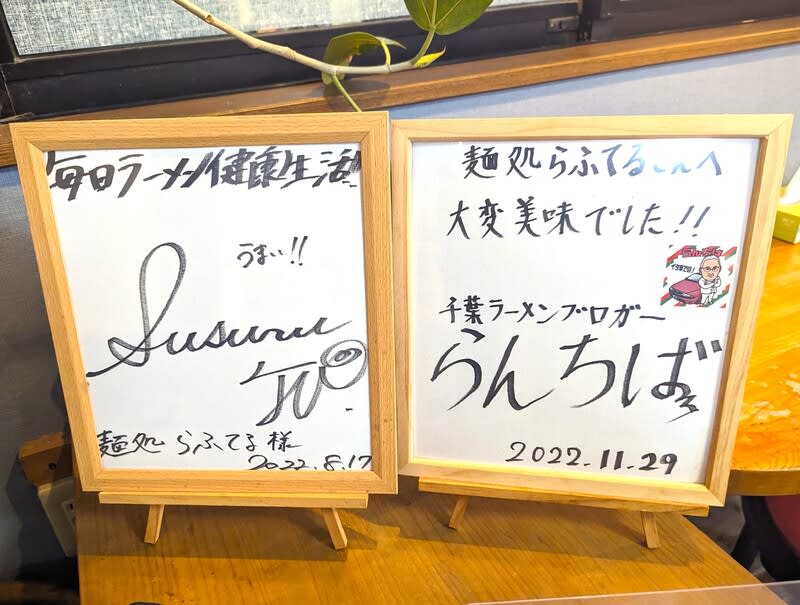 毎日ラーメン健康生活!
うまい!!
Susuru
TV
麺処 らふてる 様
2022.8.17
麺処 らふてるさんへ
大変美味でした!!
千葉ラーメンブロガー
らんちばぁ
2022.11.29